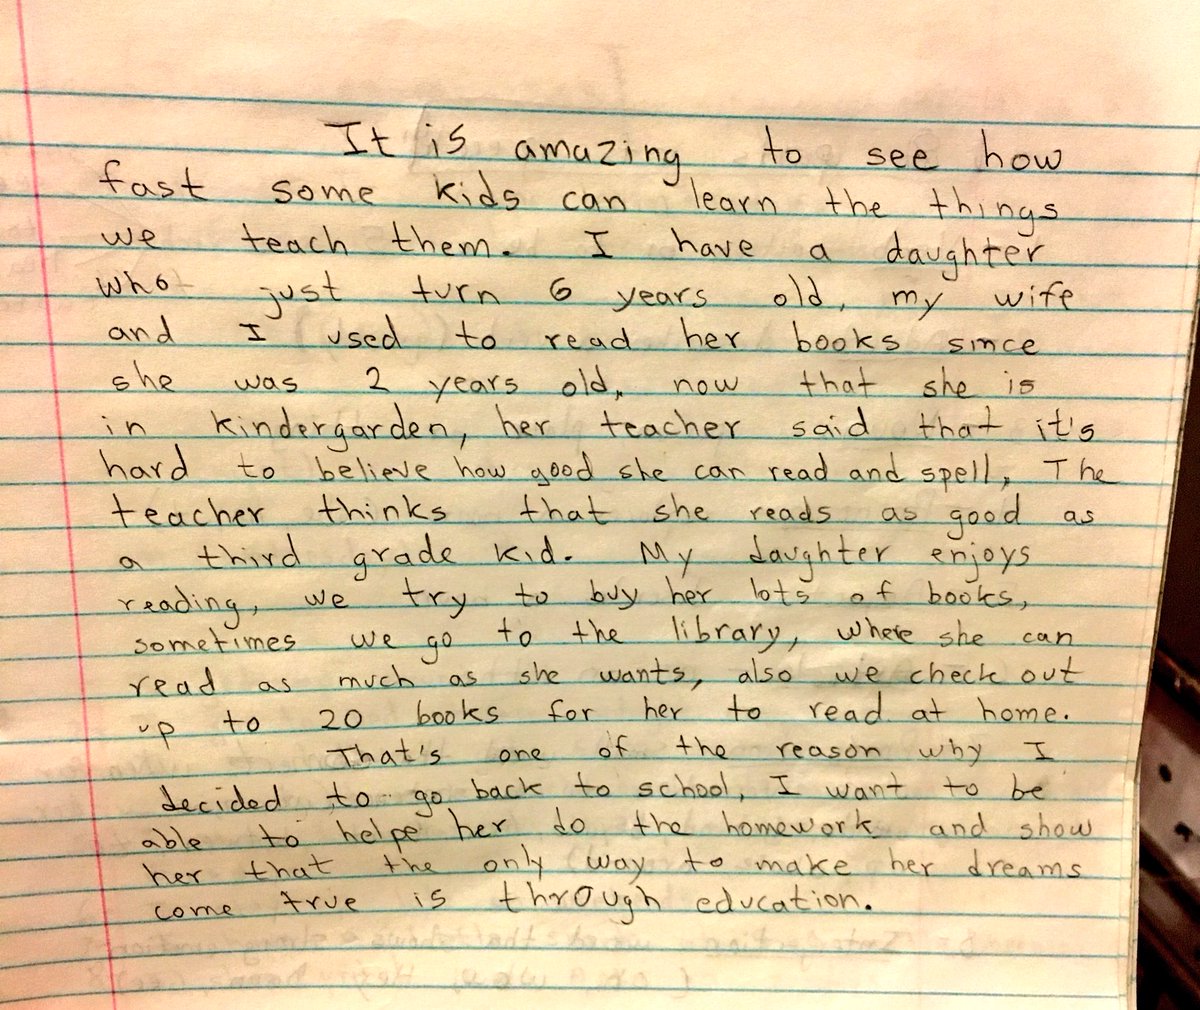 It is amazing to see how
fast some kids can learn the things
we teach them. I have a daughter
who just turn 6 years old, my wife
and I used to read her books since
she was 2 years old, now that she is
in kindergarden, her teacher said that it's
hard to believe how good she can read and spell, The
teacher thinks that she reads as good as
a third grade kid. My daughter enjoys
reading, we try to buy her lots of books,
sometimes we go to the library, where she can
read as much as she wants, also we check out
up to 20 books for her to read at home.
That's one of the reason why I
decided to go back to school, I want to be
able to helpe her do the homework and show
her that the only way to make her dreams
come true is through education.